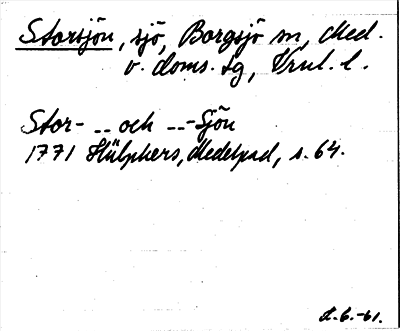 Storsjön, sjö, Borgsjö sn, Med.
v. doms. tg, Vrnl. l.
Stor- -- och -- -Sjön
1771 Hülphers, Medelpad, s. 64.
L.G.-61.